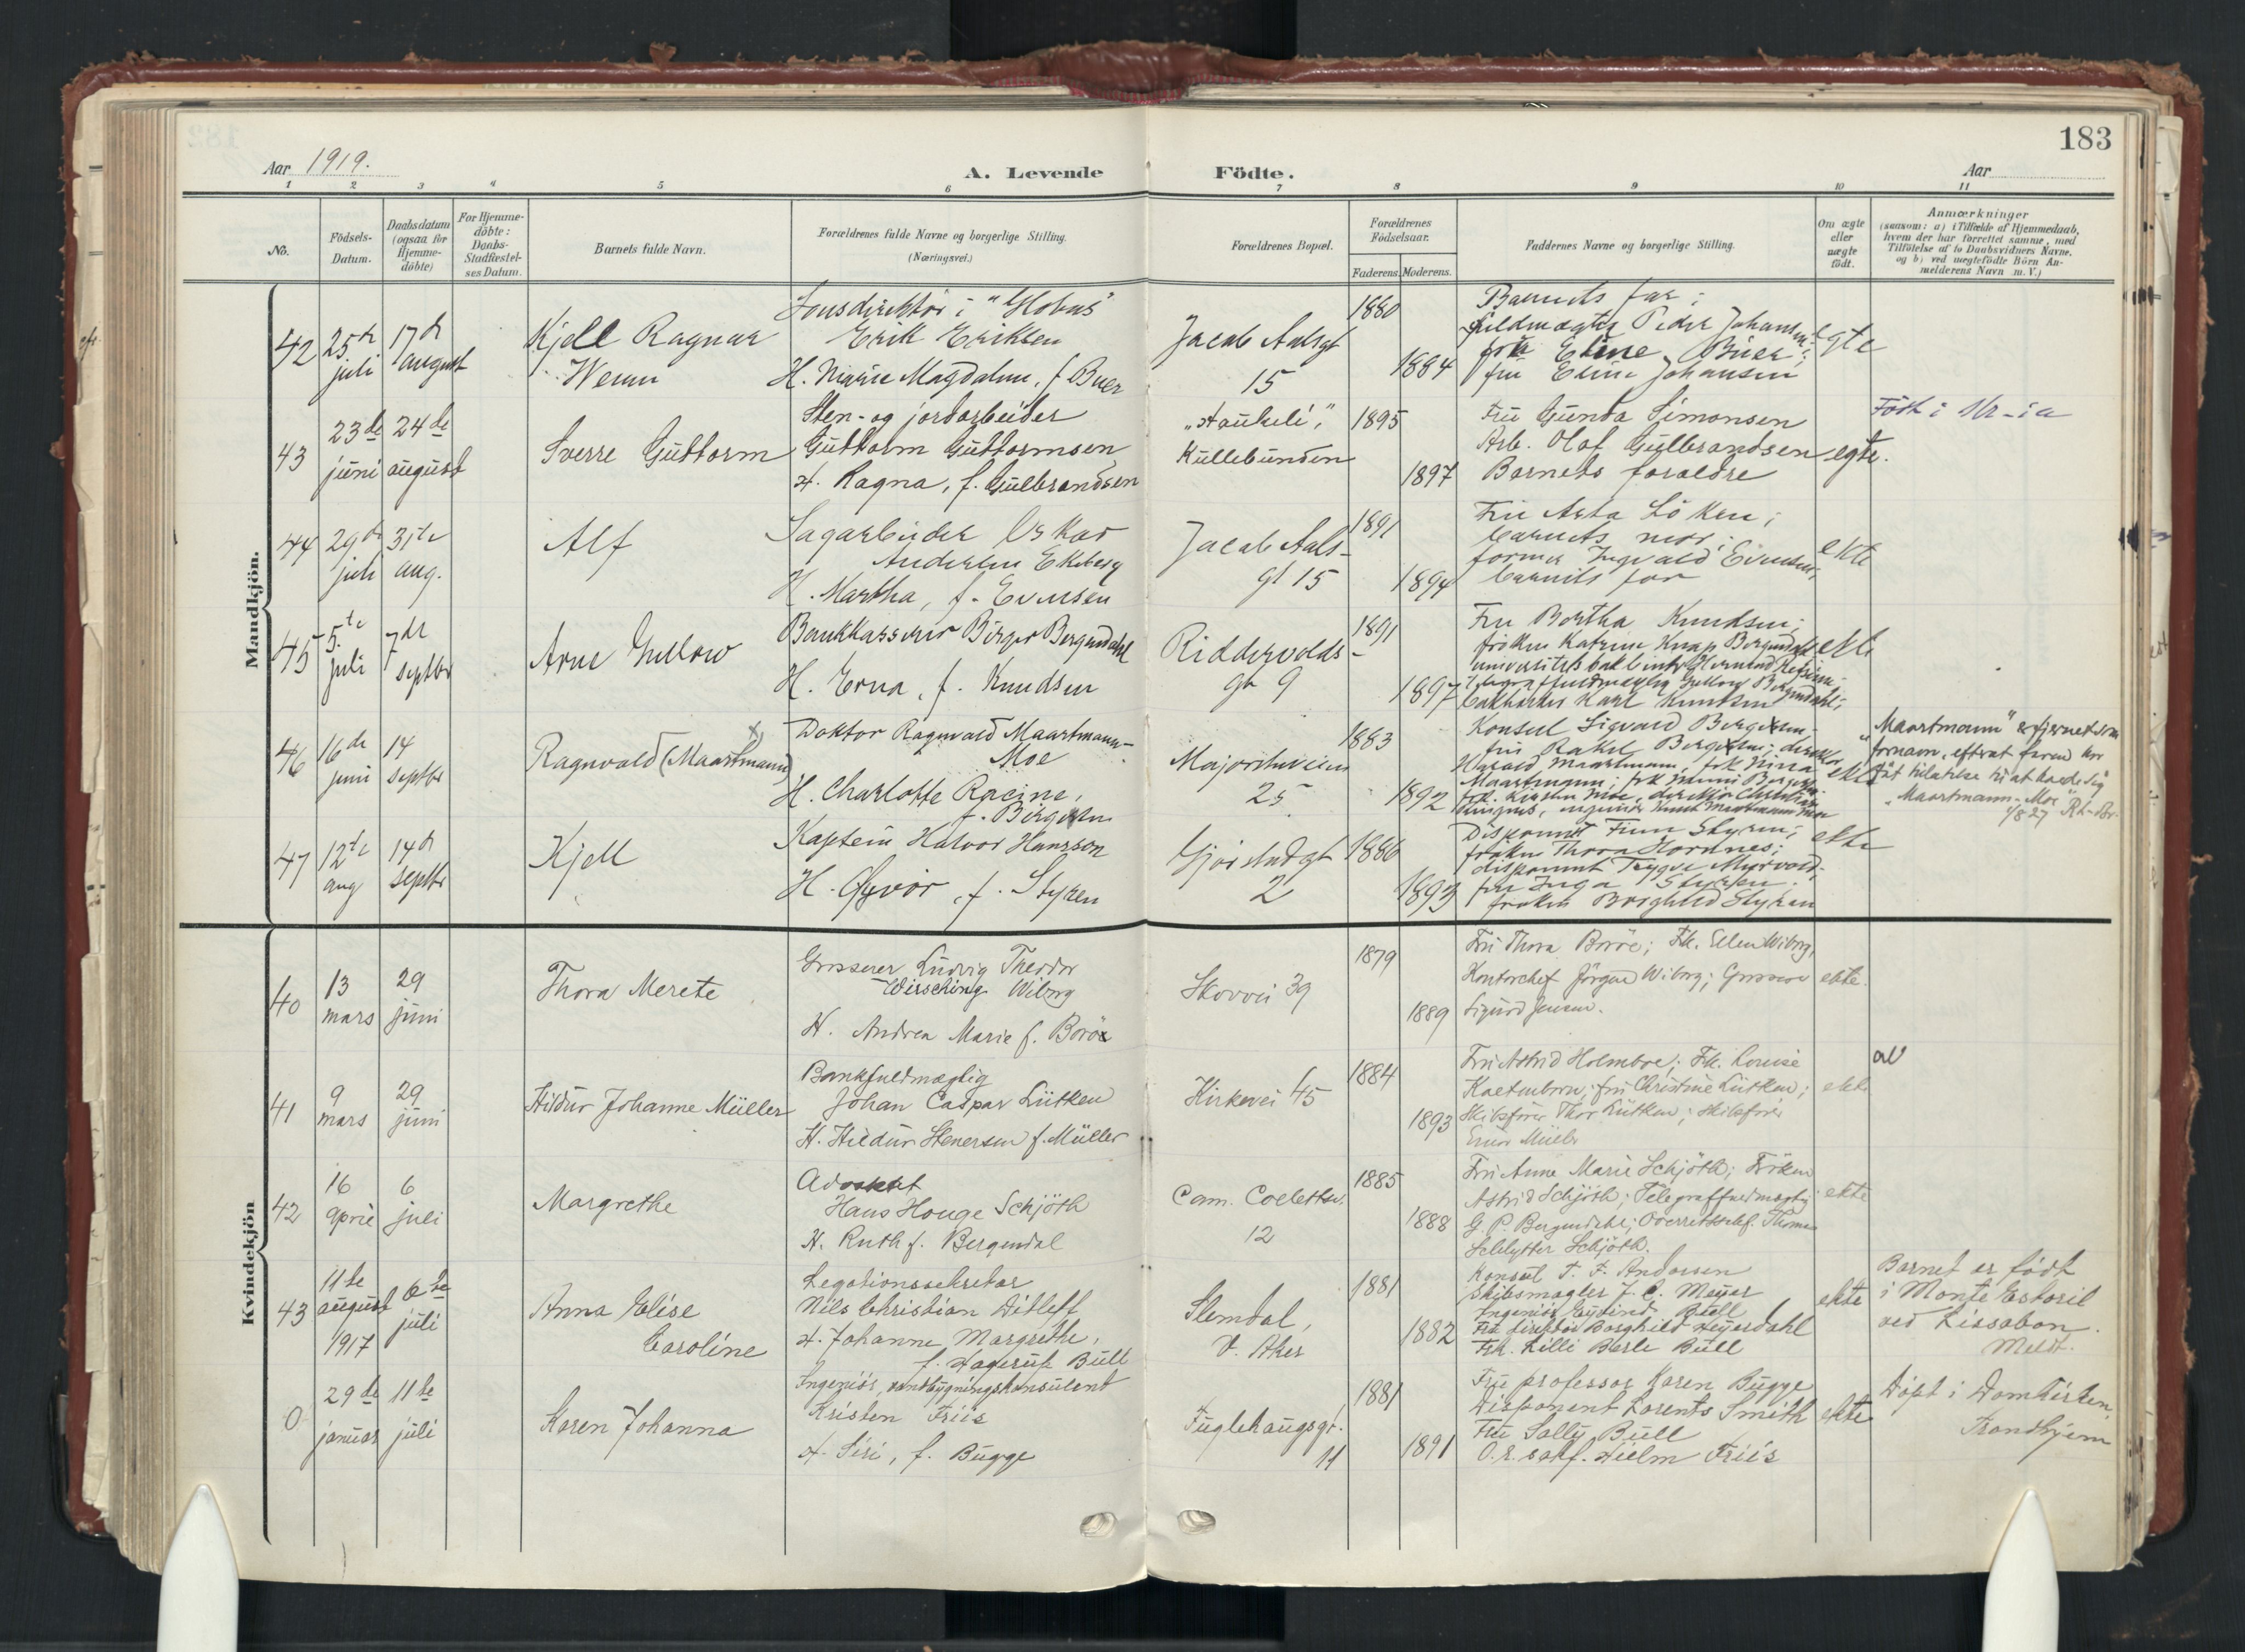 183
Aar 1919.
A. Levende Födte.
Aar
1 2 3 4 5 6 7 8 9 10 11
No.
Födsels-Datum.
Daabsdatum (ogsaa for Hjemme-döbte)
For Hjemme-döbte: Daabs-Stadfæstel-ses Datum.
Barnets fulde Navn.
Forældrenes fulde Navne og borgerlige Stilling.
(Næringsvei.)
Forældrenes Bopæl.
Forældrenes Födselsaar.
Faderens. Moderens.
Faddernes Navne og borgerlige Stilling.
Om ægte eller uægte födt.
Anmærkninger
(saasom: a) i Tilfælde af Hjemmedaab,
hvem der har forrettet samme, med
Tilföielse af to Daabsvidners Navne,
og b) ved uægtefödte Börn An-
melderens Navn m. V.)
Mandkjön.
42
25de juli
17de august
Kjell Ragnar
Wenn
"Globus"
Erik Eriksen
H. Marie Magdalene, f. Buer
Jacob Aalsgt
15
1880
1884
Barnets far;
Peder Johansen;
Eline Buer;
fru Eline Johansen
egte
43
23de juni
24de august
Sverre Guttorm
Sten- og jordarbeider
Guttorm Guttormsen
H. Ragna, f. Gulbrandsen
"Haukeli",
Kullebunden
1895
1897
Fru Gunda Simonsen
Arb. Olaf Gulbrandsen
Barnets foraldre
egte.
Född i Kr-ia
44
29de juli
31te aug.
Alf
Sagarbeider Oskar
Andersen Ekeberg
H. Martha, f. Evensen
Jacob Aals-
gt 15
1891
1894
Fru Asta Löken;
barnets mor;
former Ingvald Evensen;
barnets far
ekte
45
5.te juli
7de septbr
Arne Gellow
Bankkasserer Birger Bergendahl
H. Erna, f. Knudsen
Riddervolds-
gt 9
1891
1897
Fru Bertha Knudsen;
fröken Katrine Knap Bergendahl
Karl Knudsen
ekte
46
16de juni
14 septbr
Ragnvald (Maartmann)
Doktor Ragnvald Maartmann-
Moe
H. Charlotte Racine,
f. Bergesen
Majorstuveien
25
1883
1892
Konsul Sigvard Bergesen;
fru Rakel Bergesen; direktör
Harald Maartmann, frk Nina
Maartmann;
ekte
"Maartmann" er fjernet som
fornavn, efterat faren har
fåt tillatelse til at kalde sig
"Maartmann-Moe"
47
12te aug
14de septbr
Kjell
Kaptein Halvor Hansson
H. Gyvör, f. Styren
Gjörstadgt
2
1886
1893
Disponent Finn Styren;
fröken Thora Hornnes;
disponent Trygve
fru Inga Styren;
fröken Borghild Styren
ekte
Kvindekjön
40
13 mars
29 juni
Thora Merete
Grosserer Ludvig Theodor
Wirsching Wiborg
H. Andrea Marie f. Boröe
Skovvei 39
1879
1889
Fru Thora Boröe; Frk. Ellen Wiborg,
Kontorchef Jörgen Wiborg; Grosserer
Sigurd Jensen.
ekte.
41
9 mars
29 juni
Hildur Johanne Müller
Bankfuldmægtig
Johan Caspar Lütken
H. Hildur Stenersen f. Müller
Kirkevei 45
1884
1893
Fru Astrid Holmboe; Frk. Louise
Kaltenborn; fru Christine Lütken;
Skibsförer Thor Lütken; skibsförer
Einar Müller
ekte
42
16 april
6 juli
Margrethe
Advokat
Hans Houge Schjöth
H. Ruth f. Bergendal
Cam. Collettsv.
12
1885
1888
Fru Anne Marie Schjöth; Fröken
Astrid Schjöth; Telegraffuldmægtig
G. P. Bergendahl; Overretssakf. Thomas
Schlytter Schjöth.
ekte
43
11te august 1917
6te juli
Anna Elise
Caroline
Legationssekretær
Nils Christian Ditleff
H. Johanne Margrethe,
f. Hagerup Bull
Slemdal,
V. Aker
1881
1882
Konsul T. F. Andersen
Skibsmægler J. C. Meyer
Ingeniör Eyvind Bull
Fru direktör Borghild Heyerdahl
Frk. Lilli Berle Bull
ekte
Barnet er födt
i Monte Estoril
ved Lissabon.
Meldt.
0
29de januar
11te juli
Karen Johanna
Ingeniör, vandbygningskonsulent
Kristen Friis
H. Siri, f. Bugge
Fuglehaugsgt.
11
1881
1891
Fru professor Karen Bugge
Disponent Lorents Smith
Fru Sally Bull
O.r.sakf. Hjelm Friis
ekte
Döpt i Domkirken,
Trondhjem